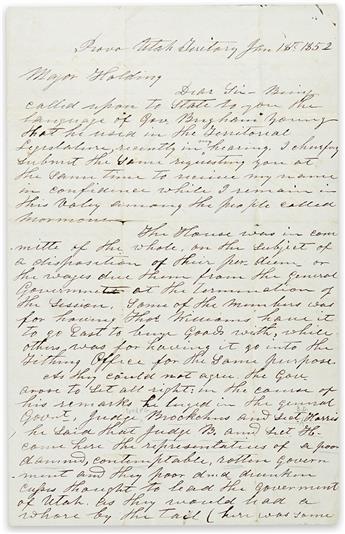 Provo Utah Teritory Jan 18th 1852
Major Holding
Dear Sir - Being
called upon to State to you the
language of Gov. Brigham Young
that he used in the Territorial
Legislature, recently in my hearing. I chearfuly
submit the same requesting you at
the same time to receive my name
in confidence while I remain in
this Valey among the people called
Mormons
The House was in com
mitte of the whole, on the Subject of
a disposition of their per. diem or
the wages due them from the general
Government at the termination of
the Session, Some of the members was
for having Thos Williams have it
to go East to buye goods with, while
others, was for having it go into the
Tithing Office for the Same purpose.
As they could not agree the Gov
arose to Set all right: in the course of
his remarks he lugd in the general
Govt, Judge Brookohns and Sect Harris
he Said that Judge B, and Sect H.
come here the representatives of a poor
damnd, contemptable, rotten govern
ment and they poor dmd drunken
cusses thought to leave the goverment
of Utah. as they would had a
whore by the tail (here was some